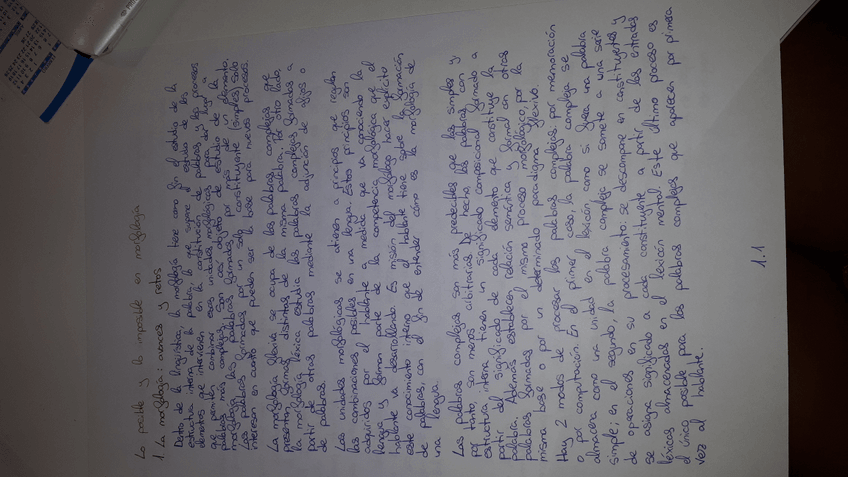 Lo posible y lo imposible en morfología
1. La morfología: avances y retos
Dentro de la lingüística, la morfología tiene como fin el estudio de la
estructura interna de la palabra, lo que supone el estudio de los
elementos que intervienen en la constitución de palabras y los procesos
que permiten combinar esas unidades morfológicas para dar lugar a
palabras más complejas. Son casi objeto de estudio de la
morfología las palabras formadas por más de un elemento.
Las palabras formadas por un solo constituyente (simples) solo
interesan en cuanto que pueden ser la base para nuevos procesos.
La morfología flexiva se ocupa de las palabras complejas que
presentan formas distintas de la misma palabra. Por otro lado,
la morfología léxica estudia las palabras complejas formadas a
partir de otras palabras mediante la adjunción de afijos o
de palabras.
Las unidades morfológicas se atienen a principios que regulan
las combinaciones posibles en una lengua. Estos principios son
adquiridos por el hablante a medida que va conociendo la
lengua y forman parte de la competencia morfológica que el
hablante va desarrollando. Es misión del morfólogo hacer explícito
este conocimiento interno que el hablante tiene sobre la formación
de palabras, con el fin de entender cómo es la morfología de
una lengua.
Las palabras complejas son más predecibles que las simples y
por tanto son menos arbitrarias. De hecho, las palabras con
estructura interna tienen un significado composicional formado a
partir del significado de cada elemento que constituye la
palabra. Además establecen relación semántica y formal con otras
palabras formadas por el mismo proceso morfológico, por la
misma base o por un determinado paradigma flexivo.
Hay 2 modos de procesar las palabras complejas: por memorización
o por computación. En el primer caso, la palabra compleja se
almacena como una unidad en el lexicón como si fuera una palabra
simple; en el segundo, la palabra compleja se somete a una serie
de operaciones en su procesamiento: se descompone en constituyentes y
se asigna significado a cada constituyente a partir de las entradas
léxicas almacenadas en el lexicón mental. Este último proceso es
el único posible para las palabras complejas que aparecen por primera
vez al hablante.
1.1